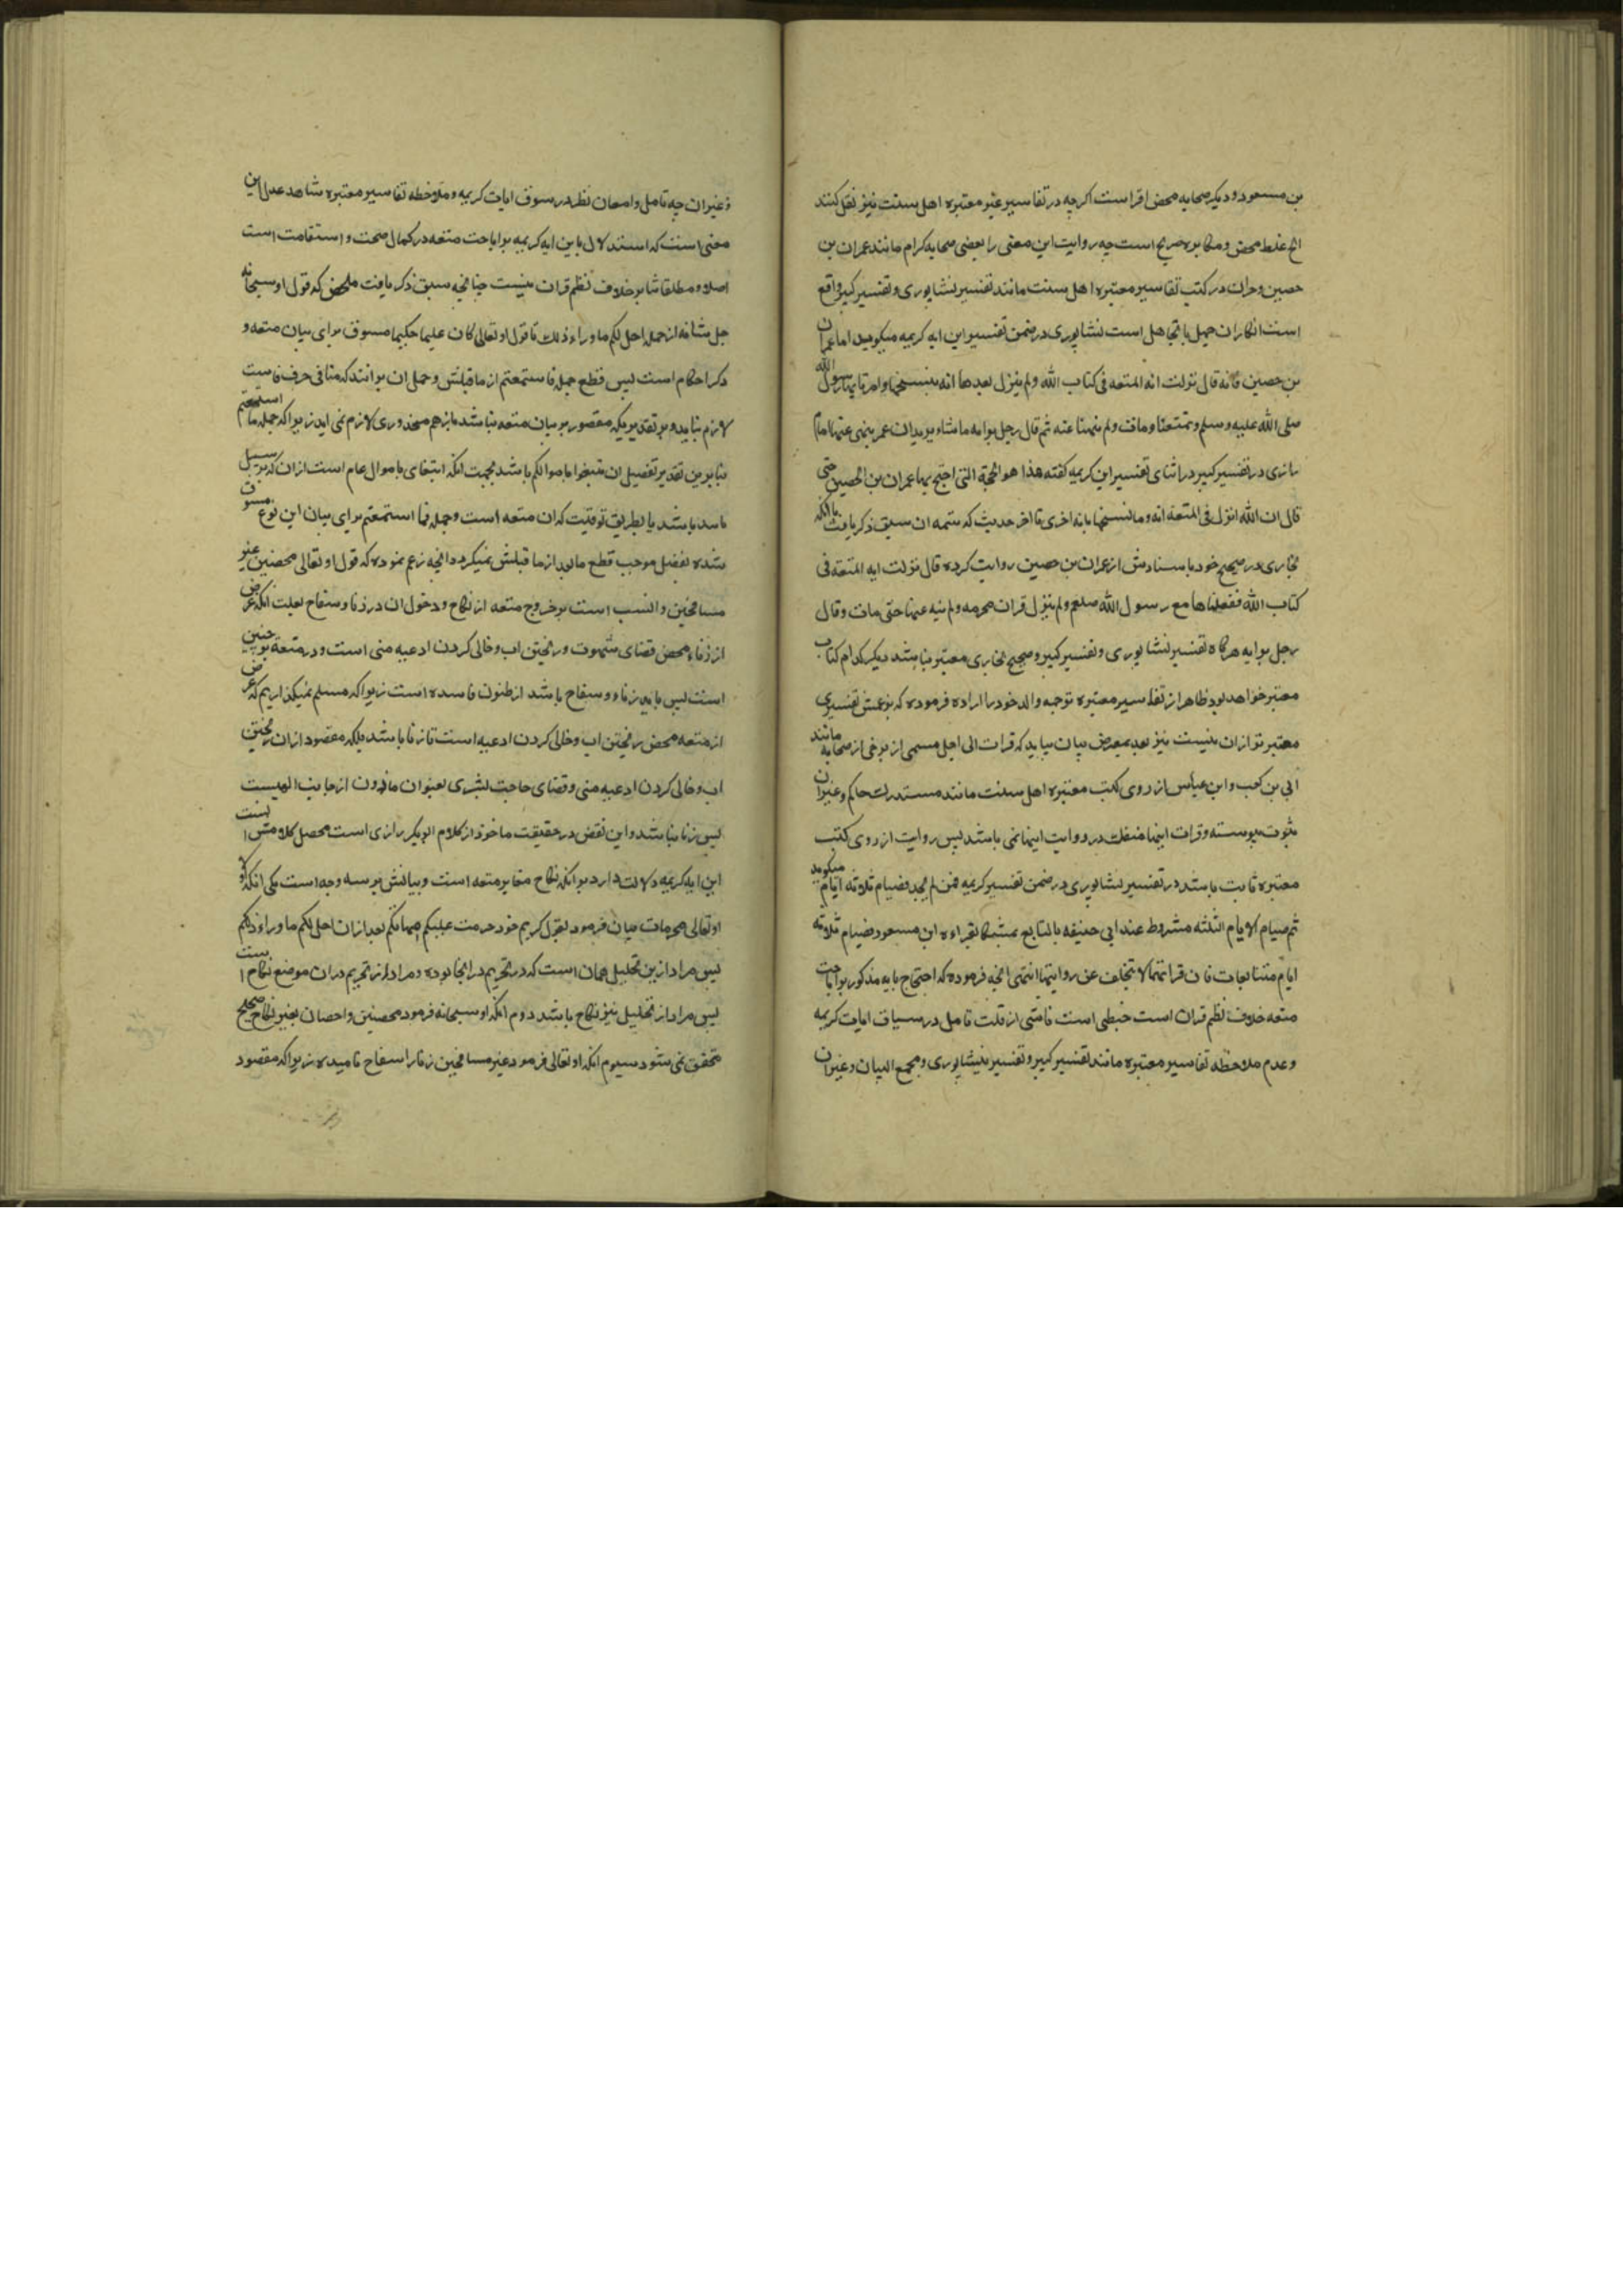 بن مسعود و دیکر صحابه محض افترا است اکرچه در تفاسیر غیر معتبره اهل سنت نیز نقل کنند
الخ غلط محض و مکابره صریح است چه روایت این معنی را بعضی صحابه کرام مانند عمران بن
حصین و جز ان در کتب تفاسیر معتبره اهل سنت مانند تفسیر نیشاپوری و تفسیر کبیر واقع
است انکار ان جهل یا تجاهل است نیشاپوری در ضمن تفسیر این ایه کریمه میکوید اما عمران
بن حصین فانه قال نزلت ایه المتعه فی کتاب الله ولم ینزل بعدها ایه ینسخها وامرنا بها رسول الله
صلی الله علیه وسلم وتمتعنا ومات ولم ینهنا عنه ثم قال رجل برایه ما شاء یرید ان عمر ینهی عنها امام
رازی در تفسیر کبیر در اثنای تفسیر این کریمه کفته هذا هو الحجة التی احتج بها عمران بن الحصین حتی
قال ان الله انزل فی المتعه ایه وما نسخها بایه اخری تا اخر حدیث که تتمه ان سبق ذکر یافت با انکه
بخاری در صحیح خود باسنادش از عمران بن حصین روایت کرده قال نزلت ایه المتعه فی
کتاب الله ففعلناها مع رسول الله صلعم ولم ینزل قران بحرمه ولم ینه عنها حتی مات وقال
رجل برایه هرکاه تفسیر نیشاپوری و تفسیر کبیر و صحیح بخاری معتبر نباشد دیکر کدام کتاب
معتبر خواهد بود ظاهرا از تفاسیر معتبره توجبه والد خود را اراده فرموده که بزعمش تفسیری
معتبرتر از ان نیست نیز بعد بمعرض بیان بیاید که قرات الی اجل مسمی از برخی از صحابه مانند
ابی بن کعب و ابن عباس از روی کتب معتبره اهل سنت مانند مستدرک حاکم و غیر ان
بثبوت پیوسته و قرات اینها منفک در روایت اینها نمی باشد پس روایت از روی کتب
معتبره ثابت باشد در تفسیر نیشاپوری در ضمن تفسیر کریمه فمن لم یجد فصیام ثلاثه ایام میکوید
ثم صیام الایام الثلثه مشروط عند ابی حنیفه بالتتابع تمسکا بقراءه ابن مسعود فصیام ثلاثه
ایام متتابعات فان قراتهما لا تتخلف عن روایتهما انتهی انچه فرموده که احتجاج بایه مذکور بر اباحت
متعه خلاف نظم قران است خبطی است ناشی از قلت تامل در سیاق ایات کریمه
و عدم ملاحظه تفاسیر معتبره مانند تفسیر کبیر و تفسیر نیشاپوری و مجمع البیان و غیر ان
و غیر ان چه تامل و امعان نظر در سوق ایات کریمه و ملاحظه تفاسیر معتبره شاهد عدل این
معنی است که استدلال باین ایه کریمه بر اباحت متعه در کمال صحت و استقامت است
اصلا و مطلقا شایبه خلاف نظم قران نیست چنانچه سبق ذکر یافت ملخص که قول او سبحانه
جل شانه از جمله احل لکم ما وراء ذلک تا قول او تعالی کان علیما حکیما مسوق برای بیان متعه و
ذکر احکام است پس قطع جمله فاستمتعتم از ماقبلش و حمل ان برانند که منافی حرف فاست
لازم نیاید و بر تقدیریکه مقصور بر بیان متعه نباشد باز هم محذوری لازم نمی اید زیرا که جمله ما استمتعتم
بنابرین تقدیر تفصیل ان تبتغوا باموالکم باشد بجهت انکه ابتغای باموال عام است از ان که بر سبیل
باشد یا بطریق توقیت که ان متعه است و جمله فما استمتعتم برای بیان این نوع مسوق
شده تفضیل موجب قطع مابعد از ماقبلش نمیکردد انچه زعم نموده که قول او تعالی محصنین غیر
مسافحین دال نسب است بر خروج متعه از نکاح و دخول ان در زنا و سفاح بعلت انکه غرض
از زناء محض قضای شهوت و ریختن اب و خالی کردن ادعیه منی است و در متعه نیز چنین
است پس باید زناء و سفاح باشد از ظنون فاسده است زیرا که مسلم نمیکذاریم که غرض
از متعه محض ریختن اب و خالی کردن ادعیه است تا زنا باشد بلکه مقصود از ان ریختن
اب و خالی کردن ادعیه منی و قضای حاجت بشری بعنوان ماذون از جانب الهیست
پس زنا نباشد و این نقض در حقیقت ماخوذ از کلام ابوبکر رازی است محصل کلامش انست
این ایه کریمه دلالت دارد بر انکه نکاح مغایر متعه است و بیانش بر سه وجه است یکی انکه او
او تعالی محرمات بیان فرمود بقول کریم خود حرمت علیکم امهاتکم بعد از ان احل لکم ما وراء ذلکم
پس مراد از ین تحلیل همان است که در تحریم در انجا بوده و مراد از تحریم در ان موضع نکاح است
پس مراد از تحلیل نیز نکاح باشد دوم انکه او سبحانه فرمود محصنین و احصان بغیر نکاح صحیح
متحقق نمی شود سیوم انکه او تعالی فرمود غیر مسافحین زنا را سفاح نامیده زیرا که مقصود